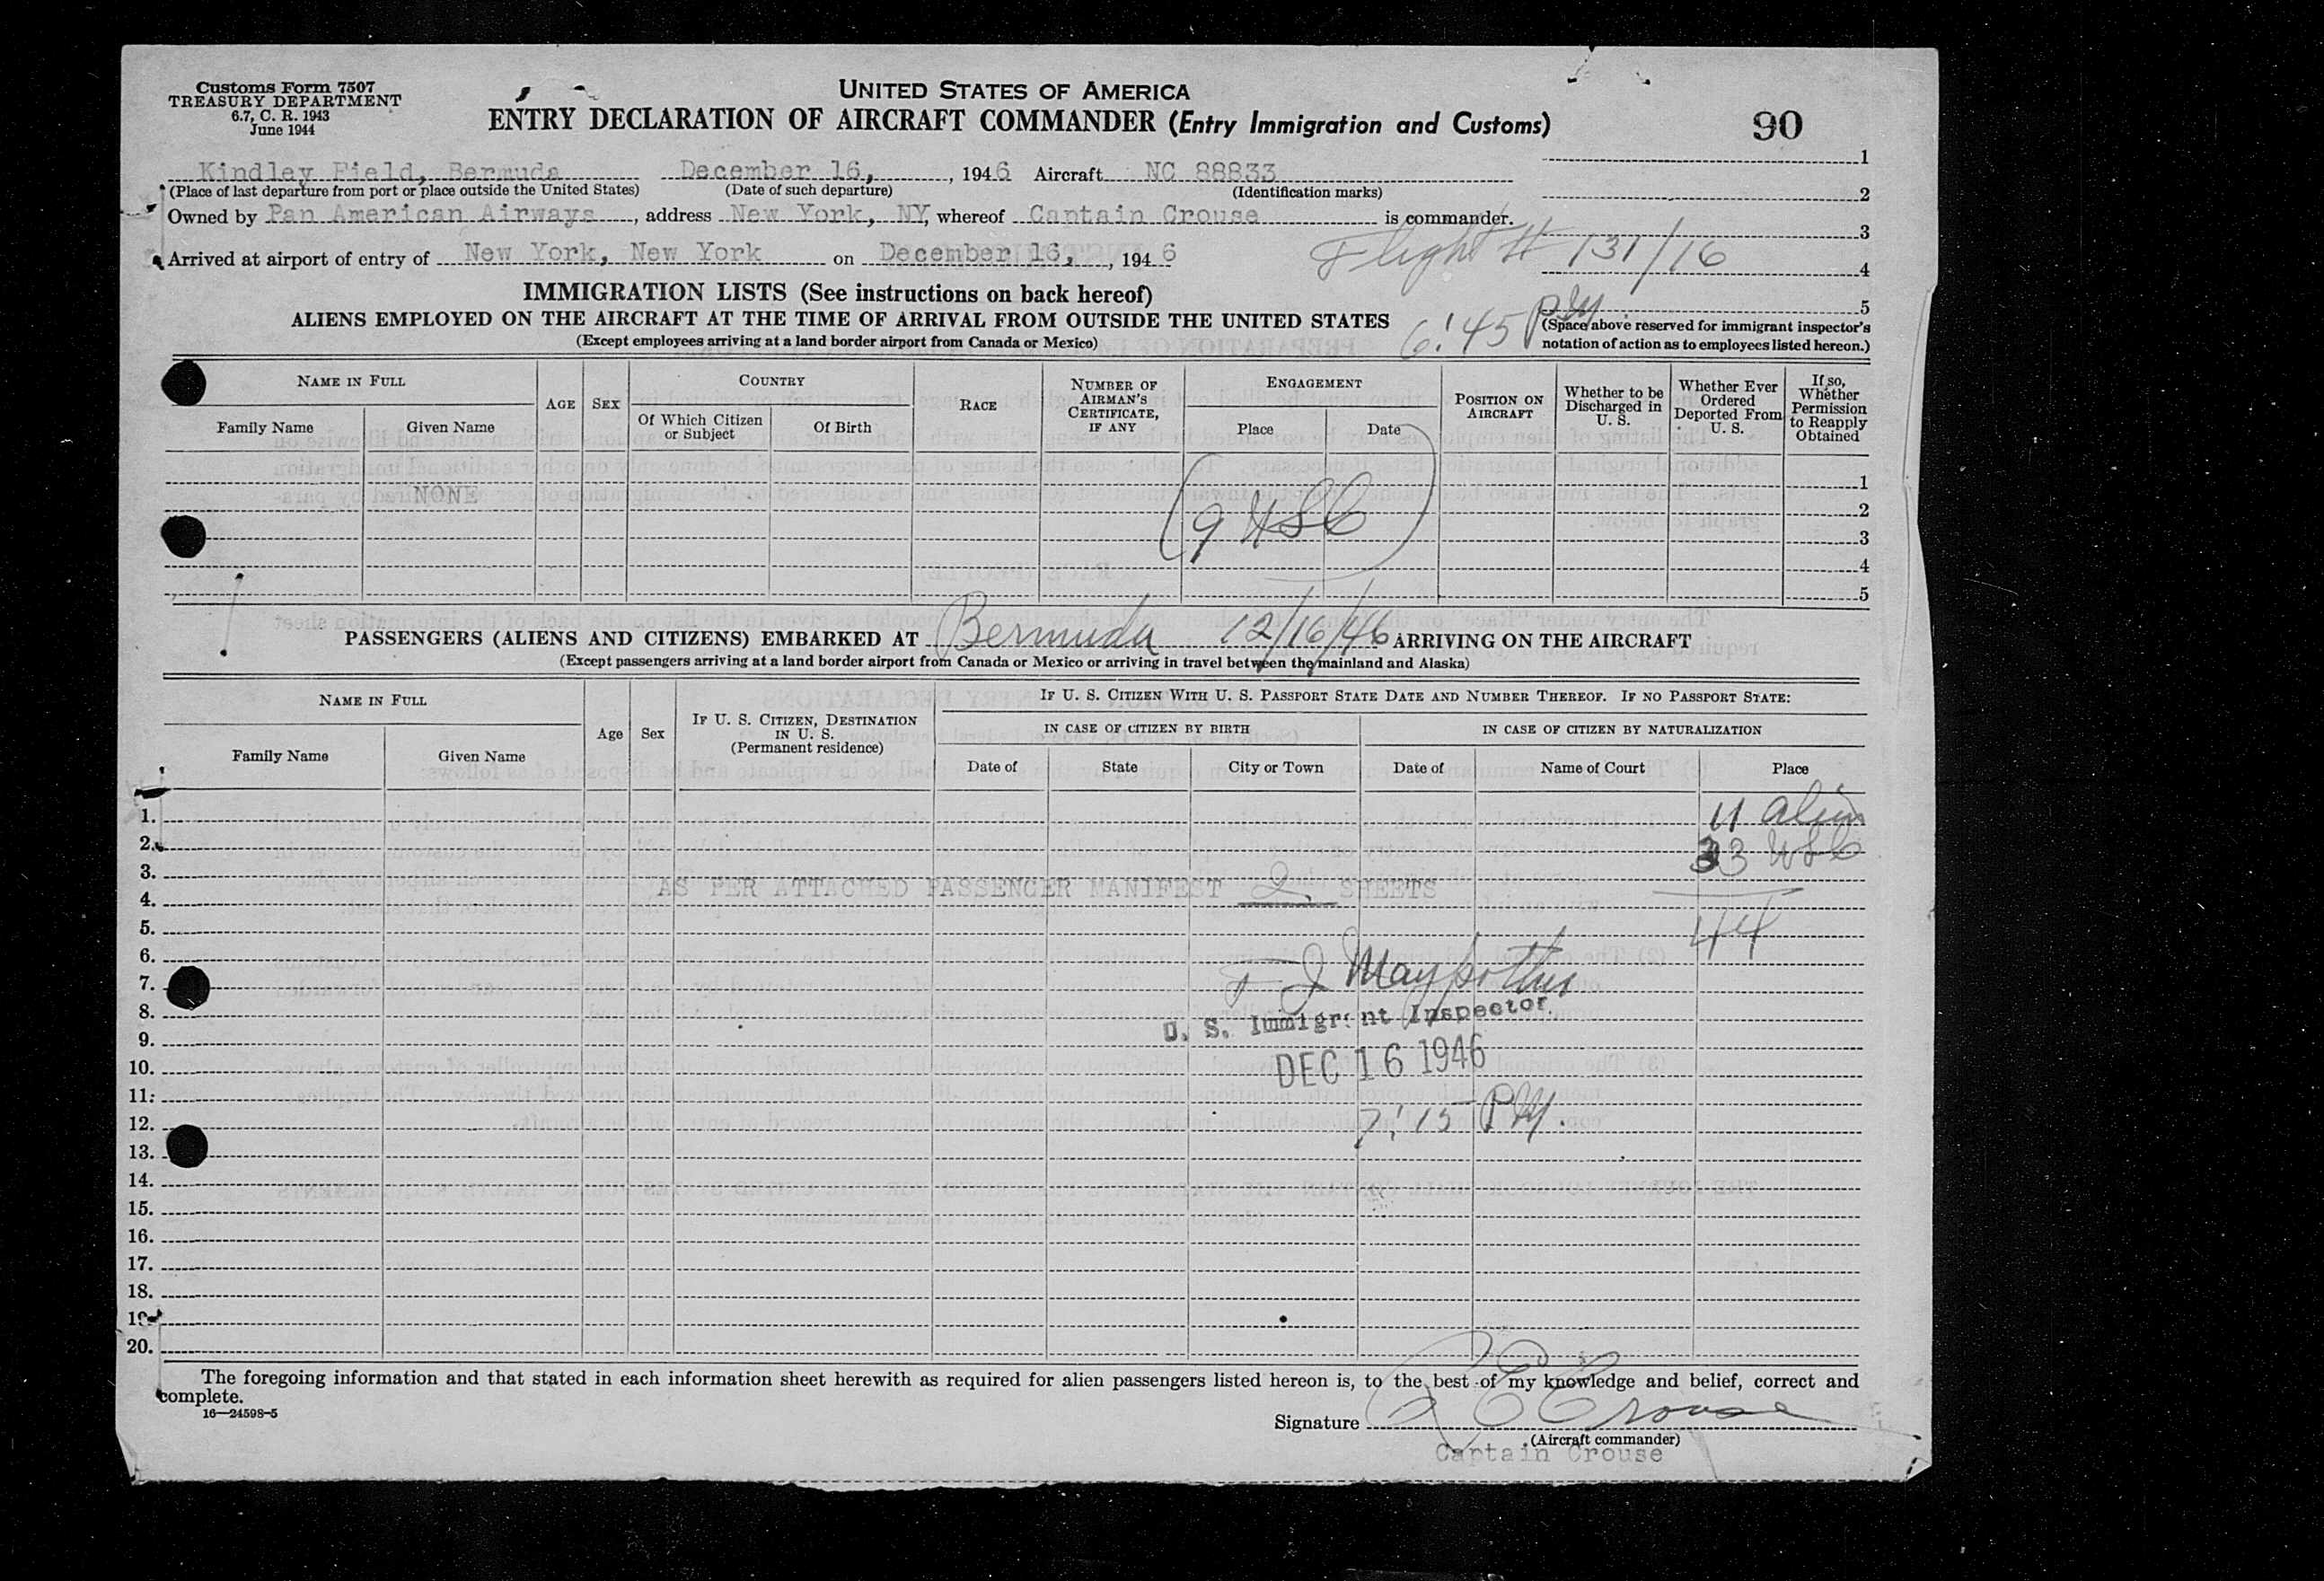 Customs Form 7507
TREASURY DEPARTMENT
6.7, C. R. 1943
June 1944
UNITED STATES OF AMERICA
ENTRY DECLARATION OF AIRCRAFT COMMANDER (Entry Immigration and Customs)
90
Kindley Field, Bermuda December 16, , 1946 Aircraft NC 88833
(Place of last departure from port or place outside the United States) (Date of such departure) (Identification marks)
Owned by Pan American Airways , address New York, NY, whereof Captain Crouse is commander.
Arrived at airport of entry of New York, New York on December 16, , 1946
Flight # 131/16
1
2
3
4
5
IMMIGRATION LISTS (See instructions on back hereof)
ALIENS EMPLOYED ON THE AIRCRAFT AT THE TIME OF ARRIVAL FROM OUTSIDE THE UNITED STATES
(Except employees arriving at a land border airport from Canada or Mexico)
6:45 PM
(Space above reserved for immigrant inspector's
notation of action as to employees listed hereon.)
NAME IN FULL
Family Name Given Name
AGE
SEX
COUNTRY
Of Which Citizen or Subject
Of Birth
RACE
NUMBER OF AIRMAN'S CERTIFICATE, IF ANY
ENGAGEMENT
Place Date
POSITION ON AIRCRAFT
Whether to be Discharged in U. S.
Whether Ever Ordered Deported From U. S.
If so, Whether Permission to Reapply Obtained
1
NONE
2
(9 USC)
3
4
5
PASSENGERS (ALIENS AND CITIZENS) EMBARKED AT Bermuda 12/16/46 ARRIVING ON THE AIRCRAFT
(Except passengers arriving at a land border airport from Canada or Mexico or arriving in travel between the mainland and Alaska)
NAME IN FULL
Family Name Given Name
Age
Sex
IF U. S. CITIZEN, DESTINATION IN U. S.
(Permanent residence)
IF U. S. CITIZEN WITH U. S. PASSPORT STATE DATE AND NUMBER THEREOF. IF NO PASSPORT STATE:
IN CASE OF CITIZEN BY BIRTH
Date of State City or Town
IN CASE OF CITIZEN BY NATURALIZATION
Date of Name of Court Place
1. 11 alien
2. 33 USC
3.
AS PER ATTACHED PASSENGER MANIFEST 2 SHEETS
4.
5. 44
6.
7.
8.
U. S. Immigrant Inspector.
9.
10. DEC 16 1946
11.
12. 7:15 PM.
13.
14.
15.
16.
17.
18.
19
20.
The foregoing information and that stated in each information sheet herewith as required for alien passengers listed hereon is, to the best of my knowledge and belief, correct and
complete.
16—24598-5
Signature Crouse
(Aircraft commander)
Captain Crouse